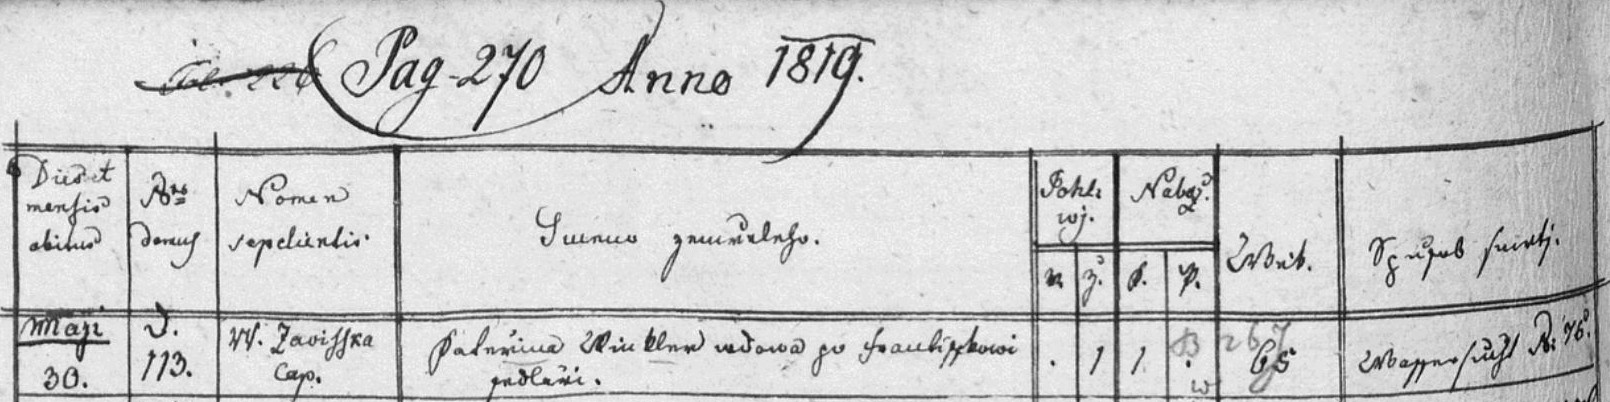 Pag. 270 Anno 1819.
Dies et
mensis
obitus
Nrus
domus
Nomen
sepelientis.
Jmeno zemřeleho.
Pohla
wj.
Nabož.
m
ž.
k.
p.
Wěk.
Spusob smrti.
Maji
30.
D.
113.
W. Zavisska
Cap.
Kateřina Winkler wdowa po Frantisskowi
sedlaři.
.
1
1
.
65
Wassersucht N: 76.